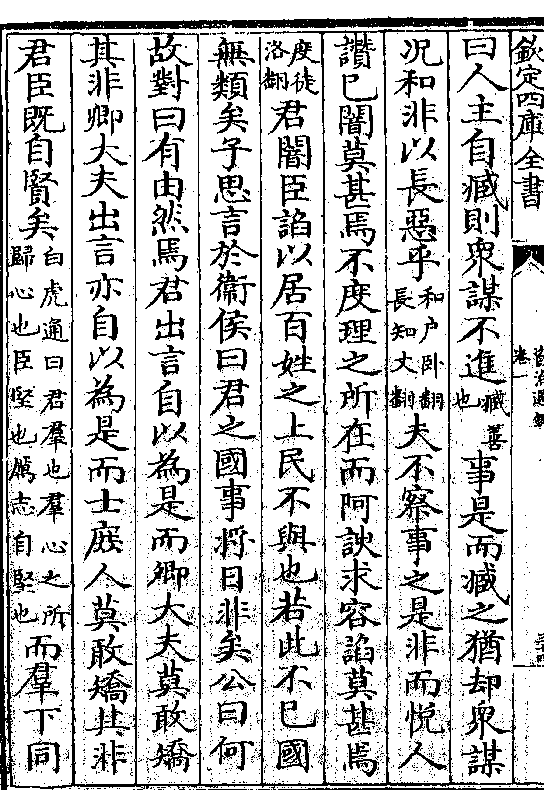 欽定四庫全書
卷一
曰人主自臧則衆謀不進臧善也事是而臧之猶却衆謀
况和非以長惡乎和户卧翻長知丈翻夫不察事之是非而悅人
讃已闇莫甚焉不度理之所在而阿諛求容諂莫甚焉
度徒洛翻君闇臣諂以居百姓之上民不與也若此不已國
無類矣子思言於衞侯曰君之國事將日非矣公曰何
故對曰有由然焉君出言自以為是而卿大夫莫敢矯
其非卿大夫出言亦自以為是而士庶人莫敢矯其非
君臣既自賢矣白虎通曰君羣也羣心之所歸心也臣堅也厲志自堅也而羣下同